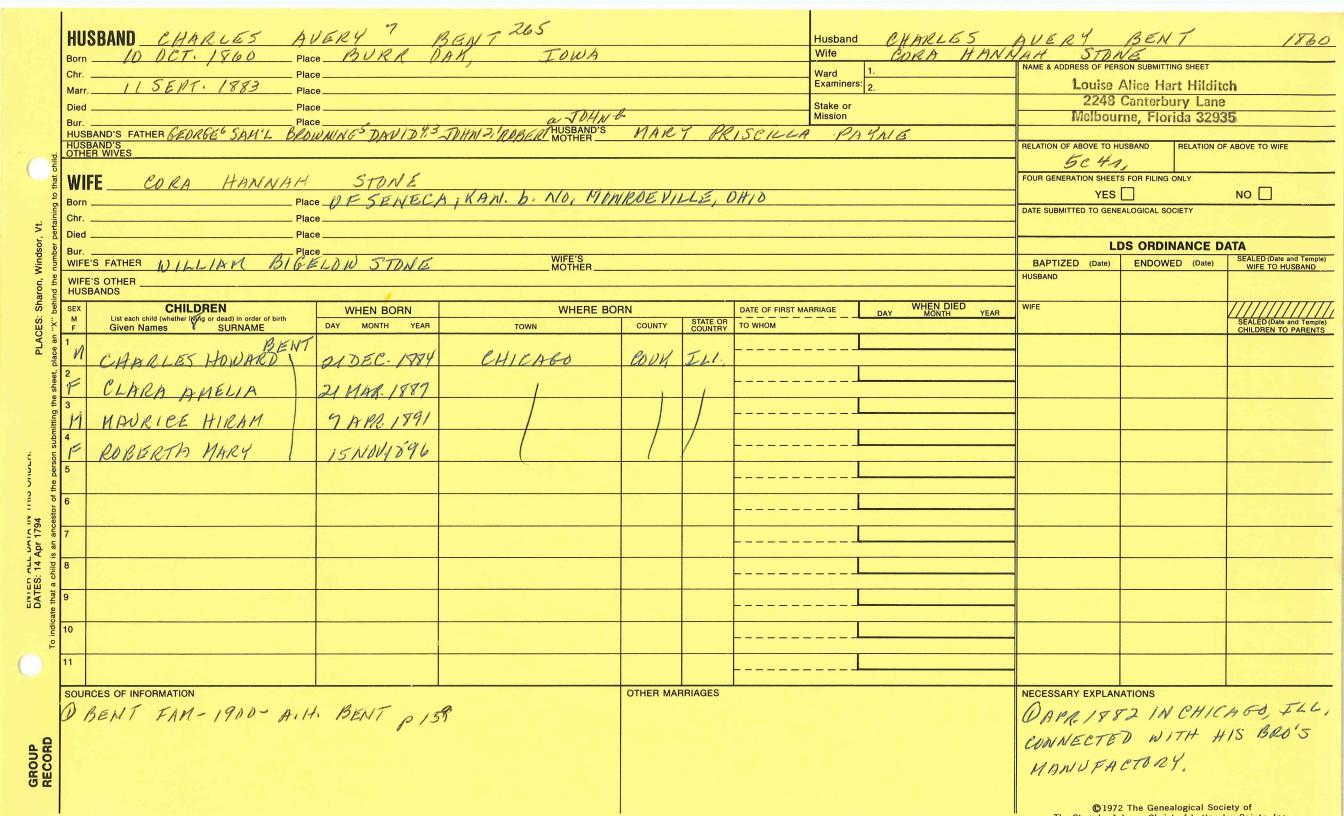 HUSBAND CHARLES AVERY 7 BENT 265
Born 10 OCT. 1860 Place BURR OAK, IOWA
Chr. Place
Marr. 11 SEPT. 1883 Place
Died Place
Bur. Place
HUSBAND'S FATHER GEORGE6 SAM'L BROWNING5 DAVID4,3 JOHN2,1 ROBERT a JOHN6 HUSBAND'S MOTHER MARY PRISCILLA PAYNE
HUSBAND'S OTHER WIVES
WIFE CORA HANNAH STONE
Born Place OF SENECA, KAN. b. NO, MONROEVILLE, OHIO
Chr. Place
Died Place
Bur. Place
WIFE'S FATHER WILLIAM BIGELOW STONE WIFE'S MOTHER
WIFE'S OTHER HUSBANDS
Husband CHARLES AVERY BENT 1860
Wife CORA HANNAH STONE
Ward Examiners: 1.
2.
Stake or Mission
NAME & ADDRESS OF PERSON SUBMITTING SHEET
Louise Alice Hart Hilditch
2248 Canterbury Lane
Melbourne, Florida 32935
RELATION OF ABOVE TO HUSBAND RELATION OF ABOVE TO WIFE
5C 4r,
FOUR GENERATION SHEETS FOR FILING ONLY
YES NO
DATE SUBMITTED TO GENEALOGICAL SOCIETY
LDS ORDINANCE DATA
BAPTIZED (Date) ENDOWED (Date) SEALED (Date and Temple) WIFE TO HUSBAND
HUSBAND
WIFE
SEALED (Date and Temple) CHILDREN TO PARENTS
SEX M F
CHILDREN
List each child (whether living or dead) in order of birth
Given Names SURNAME
WHEN BORN
DAY MONTH YEAR
WHERE BORN
TOWN COUNTY STATE OR COUNTRY
DATE OF FIRST MARRIAGE
TO WHOM
WHEN DIED
DAY MONTH YEAR
1 M CHARLES HOWARD BENT 21 DEC. 1884 CHICAGO COOK ILL.
2 F CLARA AMELIA 21 MAR. 1887
3 M MAURICE HIRAM 7 APR. 1891
4 F ROBERTA MARY 15 NOV 1896
5
6
7
8
9
10
11
SOURCES OF INFORMATION
① BENT FAM- 1900- A.H. BENT p 159
OTHER MARRIAGES
NECESSARY EXPLANATIONS
① APR. 1882 IN CHICAGO, ILL,
CONNECTED WITH HIS BRO'S
MANUFACTORY.
©1972 The Genealogical Society of
PLACES: Sharon, Windsor, Vt.
To indicate that a child is an ancestor of the person submitting the sheet, place an "X" behind the number pertaining to that child.
ENTER ALL DATA IN THIS ORDER:
DATES: 14 Apr 1794
GROUP RECORD